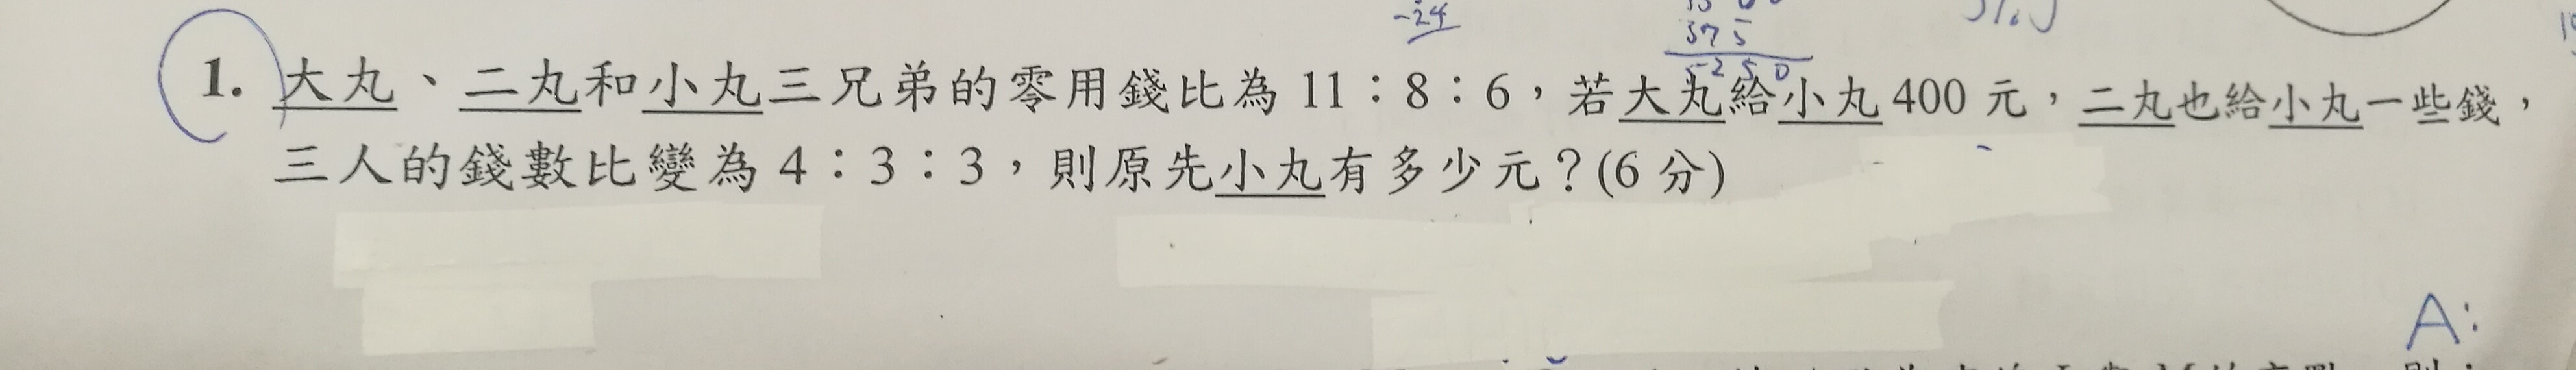 -24
375
5250
1. 大丸、二丸和小丸三兄弟的零用錢比為 11：8：6，若大丸給小丸 400 元，二丸也給小丸一些錢，
三人的錢數比變為 4：3：3，則原先小丸有多少元？(6 分)
A: